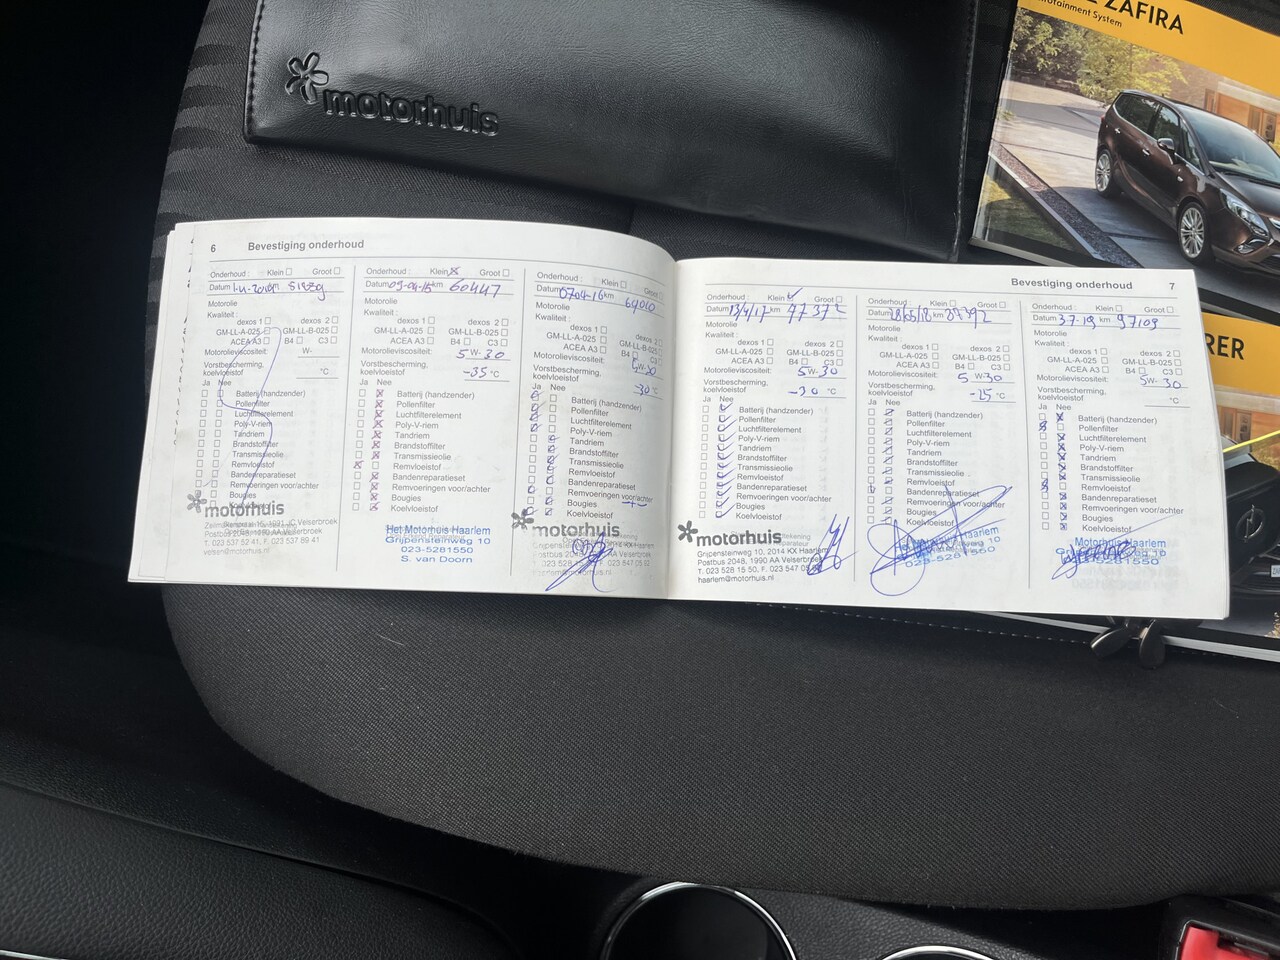 motorhuis
ZAFIRA
Infotainment System
RER
6 Bevestiging onderhoud
Onderhoud : Klein Groot
Datum km
Motorolie
Kwaliteit :
dexos 1 dexos 2
GM-LL-A-025 GM-LL-B-025
ACEA A3 B4 C3
Motorolieviscositeit: W-
Vorstbescherming,
koelvloeistof °C
Ja Nee
Batterij (handzender)
Pollenfilter
Luchtfilterelement
Poly-V-riem
Tandriem
Brandstoffilter
Transmissieolie
Remvloeistof
Bandenreparatieset
Remvoeringen voor/achter
Bougies
motorhuis
velsen@motorhuis.nl
Onderhoud : Klein Groot
Datum 09-04-15 km 60447
Motorolie
Kwaliteit :
dexos 1 dexos 2
GM-LL-A-025 GM-LL-B-025
ACEA A3 B4 C3
Motorolieviscositeit: 5 W- 30
Vorstbescherming,
koelvloeistof -35 °C
Ja Nee
Batterij (handzender)
Pollenfilter
Luchtfilterelement
Poly-V-riem
Tandriem
Brandstoffilter
Transmissieolie
Remvloeistof
Bandenreparatieset
Remvoeringen voor/achter
Bougies
Koelvloeistof
Het Motorhuis Haarlem
Grijpensteinweg 10
023-5281550
S. van Doorn
Onderhoud : Klein Groot
Datum km
Motorolie
Kwaliteit :
dexos 1 dexos 2
GM-LL-A-025 GM-LL-B-025
ACEA A3 B4 C3
Motorolieviscositeit: 5W-30
Vorstbescherming,
koelvloeistof -30 °C
Ja Nee
Batterij (handzender)
Pollenfilter
Luchtfilterelement
Poly-V-riem
Tandriem
Brandstoffilter
Transmissieolie
Remvloeistof
Bandenreparatieset
Remvoeringen voor/achter
Bougies
Koelvloeistof
motorhuis
Postbus 2048, 1990 AA Velserbroek
haarlem@motorhuis.nl
Bevestiging onderhoud 7
Onderhoud : Klein Groot
Datum 13/4/17 km
Motorolie
Kwaliteit :
dexos 1 dexos 2
GM-LL-A-025 GM-LL-B-025
ACEA A3 B4 C3
Motorolieviscositeit: 5W-30
Vorstbescherming,
koelvloeistof -30 °C
Ja Nee
Batterij (handzender)
Pollenfilter
Luchtfilterelement
Poly-V-riem
Tandriem
Brandstoffilter
Transmissieolie
Remvloeistof
Bandenreparatieset
Remvoeringen voor/achter
Bougies
Koelvloeistof
motorhuis
Grijpensteinweg 10, 2014 KX Haarlem
Postbus 2048, 1990 AA Velserbroek
haarlem@motorhuis.nl
Onderhoud : Klein Groot
Datum km
Motorolie
Kwaliteit :
dexos 1 dexos 2
GM-LL-A-025 GM-LL-B-025
ACEA A3 B4 C3
Motorolieviscositeit: 5 W-30
Vorstbescherming,
koelvloeistof -25 °C
Ja Nee
Batterij (handzender)
Pollenfilter
Luchtfilterelement
Poly-V-riem
Tandriem
Brandstoffilter
Transmissieolie
Remvloeistof
Bandenreparatieset
Remvoeringen voor/achter
Bougies
Koelvloeistof
Haarlem
023-5281550
Onderhoud : Klein Groot
Datum 3.7.19 km 97109
Motorolie
Kwaliteit :
dexos 1 dexos 2
GM-LL-A-025 GM-LL-B-025
ACEA A3 B4 C3
Motorolieviscositeit: 5W-30
Vorstbescherming,
koelvloeistof °C
Ja Nee
Batterij (handzender)
Pollenfilter
Luchtfilterelement
Poly-V-riem
Tandriem
Brandstoffilter
Transmissieolie
Remvloeistof
Bandenreparatieset
Remvoeringen voor/achter
Bougies
Koelvloeistof
Motorhuis Haarlem